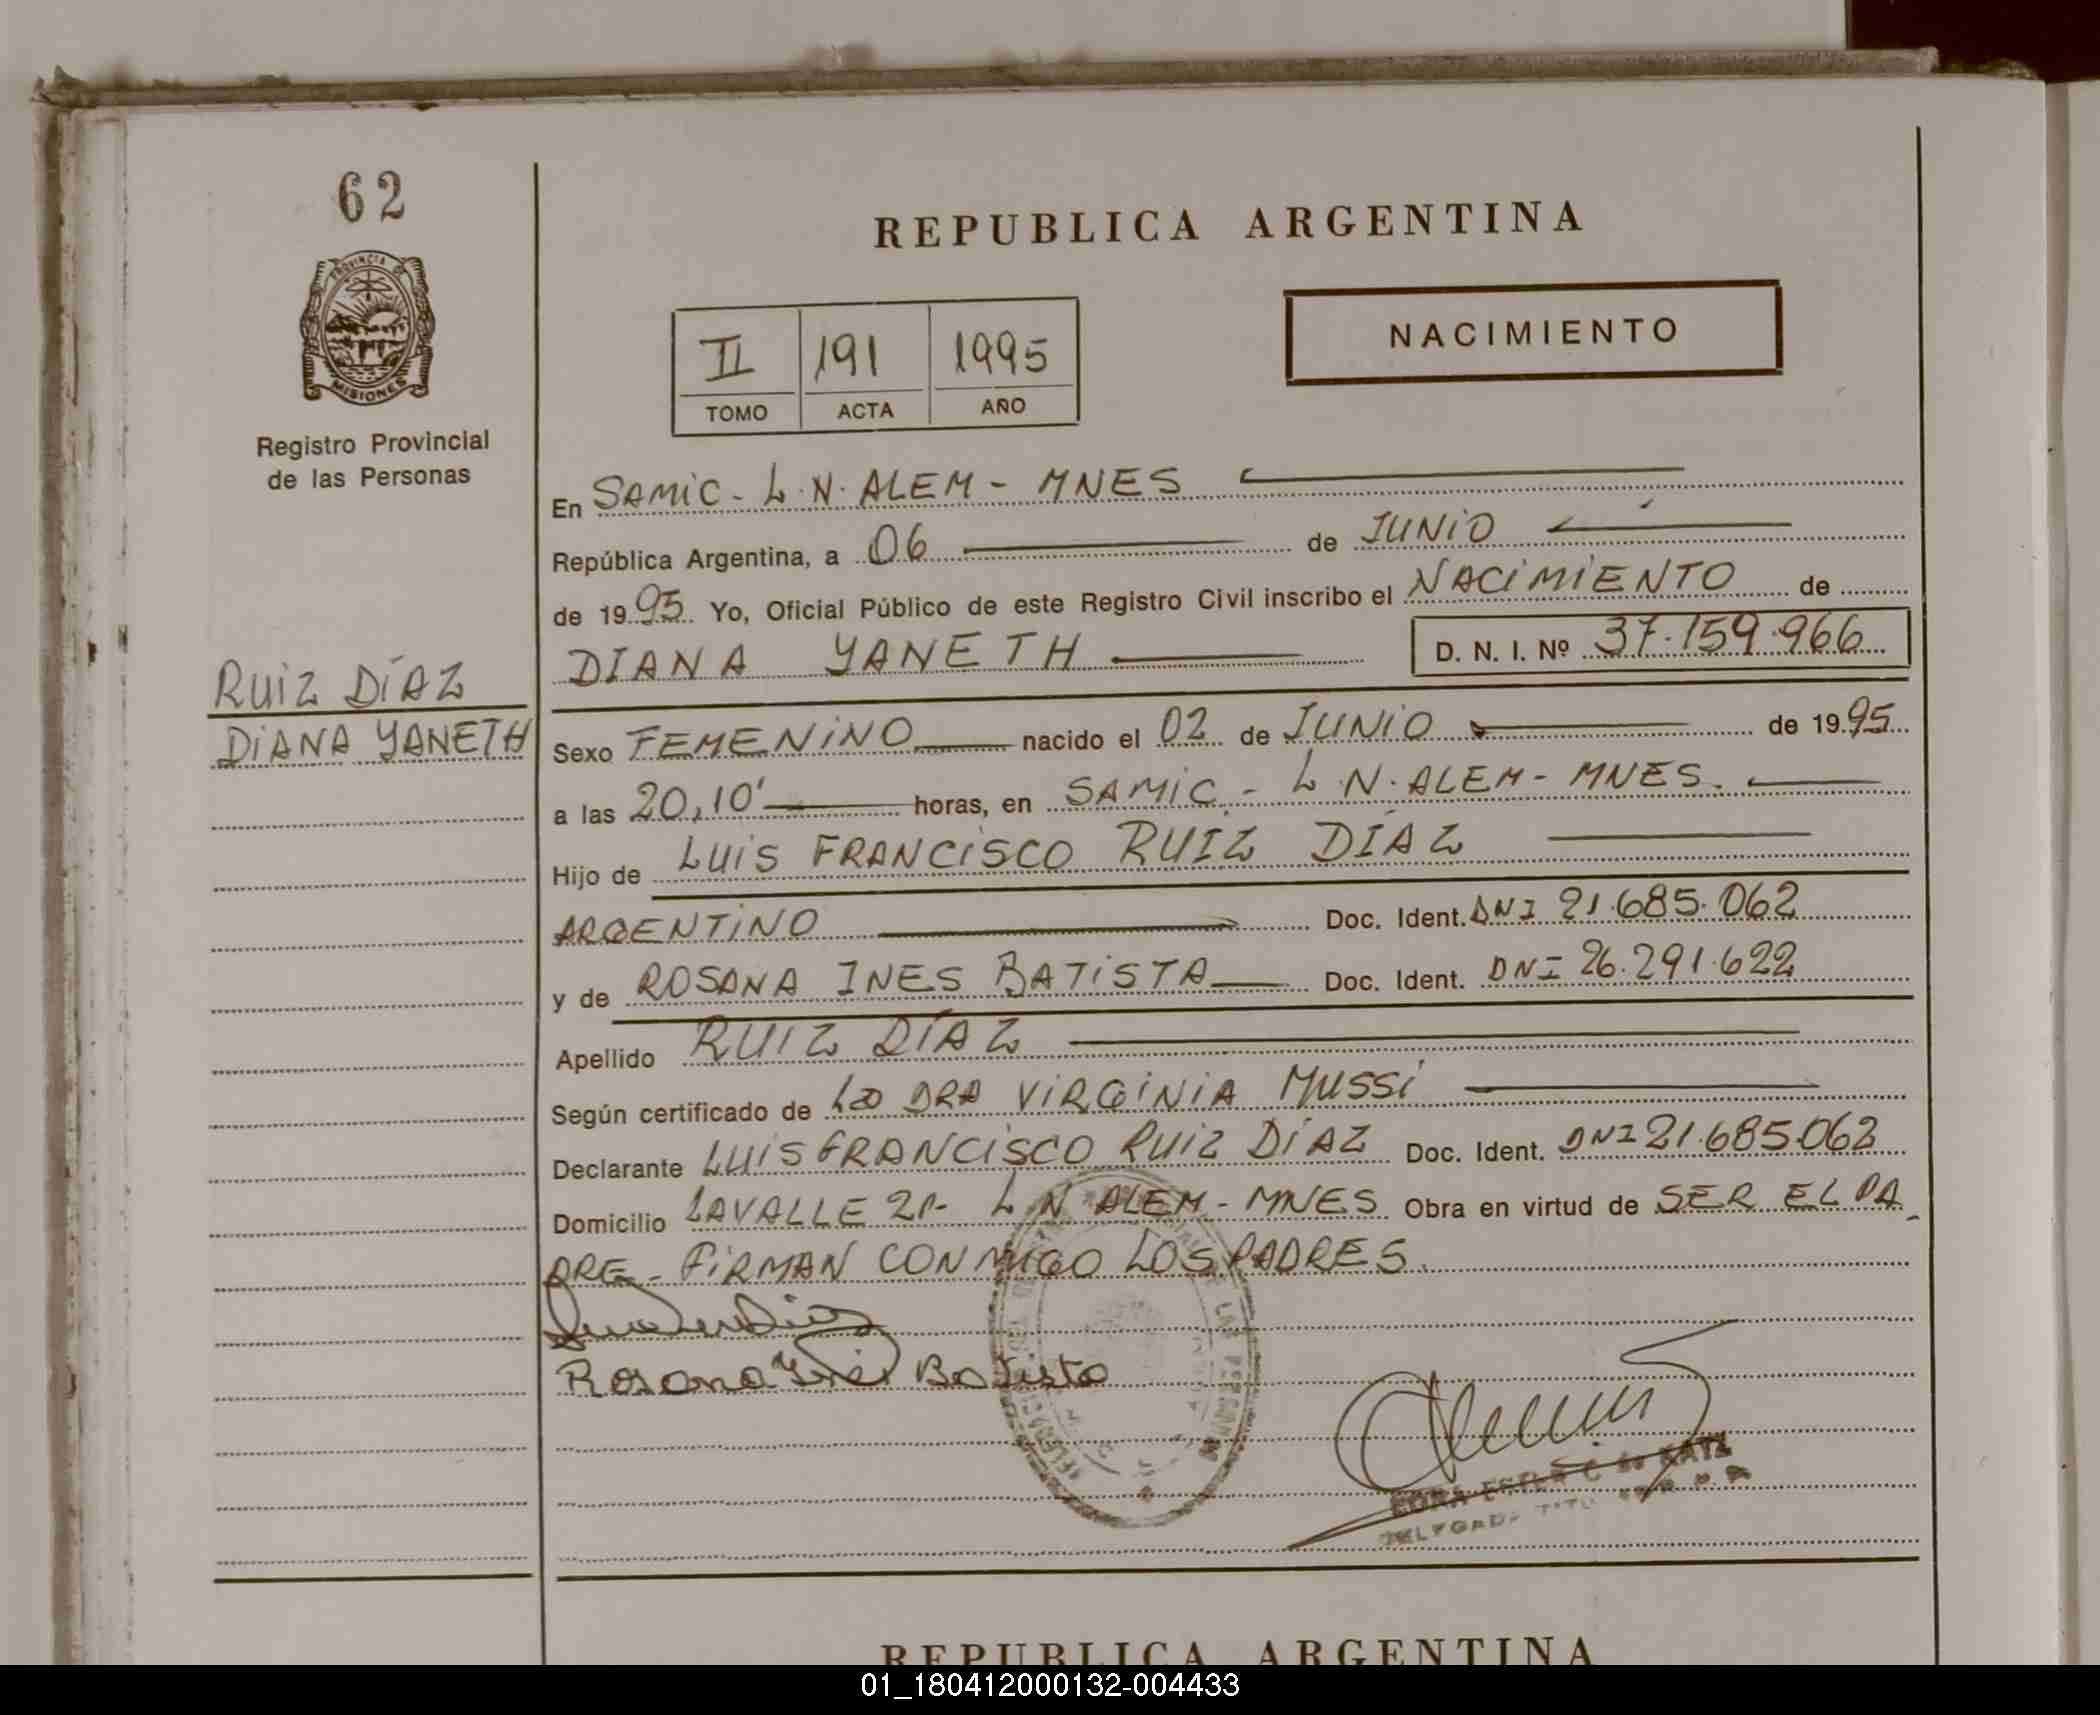 62
PROVINCIA DE
MISIONES
Registro Provincial
de las Personas
RUIZ DÍAZ
DIANA YANETH
REPUBLICA ARGENTINA
NACIMIENTO
II 191 1995
TOMO ACTA AÑO
En SAMIC - L.N. ALEM - MNES
República Argentina, a 06 de JUNIO
de 1995 Yo, Oficial Público de este Registro Civil inscribo el NACIMIENTO de
DIANA YANETH D. N. I. Nº 37.159.966
Sexo FEMENINO nacido el 02 de JUNIO de 1995
a las 20,10' horas, en SAMIC - L.N. ALEM - MNES.
Hijo de LUIS FRANCISCO RUIZ DÍAZ
ARGENTINO Doc. Ident. DNI 21.685.062
y de ROSANA INES BATISTA Doc. Ident. DNI 26.291.622
Apellido RUIZ DÍAZ
Según certificado de La DRA VIRGINIA MUSSI
Declarante LUIS FRANCISCO RUIZ DÍAZ Doc. Ident. DNI 21.685.062
Domicilio LAVALLE L N ALEM - MNES Obra en virtud de SER EL PA
DRE - FIRMAN CONMIGO LOS PADRES.
Rosana Inés Batista
REPUBLICA ARGENTINA
01_180412000132-004433